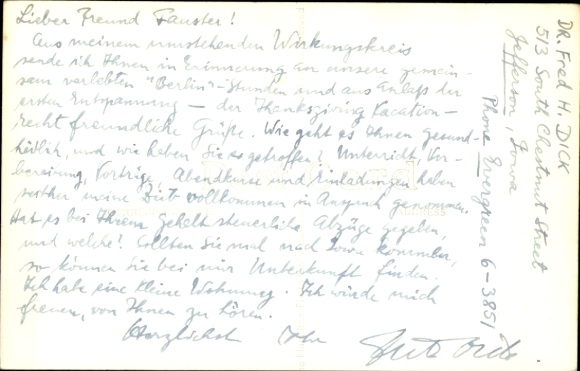 Lieber Freund Fauster!
Aus meinem umstehenden Wirkungskreis
sende ich Ihnen in Erinnerung an unsere gemein-
sam verlebten "Berlin"-Stunden und aus Anlaß der
ersten Entspannung – der Thanksgiving Vacation –
recht freundliche Grüße. Wie geht es Ihnen gesund-
heitlich, und wie haben Sie es getroffen? Unterricht, Vor-
bereitung, Vorträge, Abendkurse und Einladungen haben
seither meine Zeit vollkommen in Anspruch genommen.
Hat es bei Ihrem Gehalt steuerliche Abzüge gegeben,
und welche? Sollten Sie mal nach Iowa kommen,
so können Sie bei mir Unterkunft finden.
Ich habe eine kleine Wohnung. Ich würde mich
freuen, von Ihnen zu hören.
Herzlichst Ihr
DR. Fred H. DICK
513 South Chestnut Street
Jefferson, Iowa
Phone Evergreen 6-3851